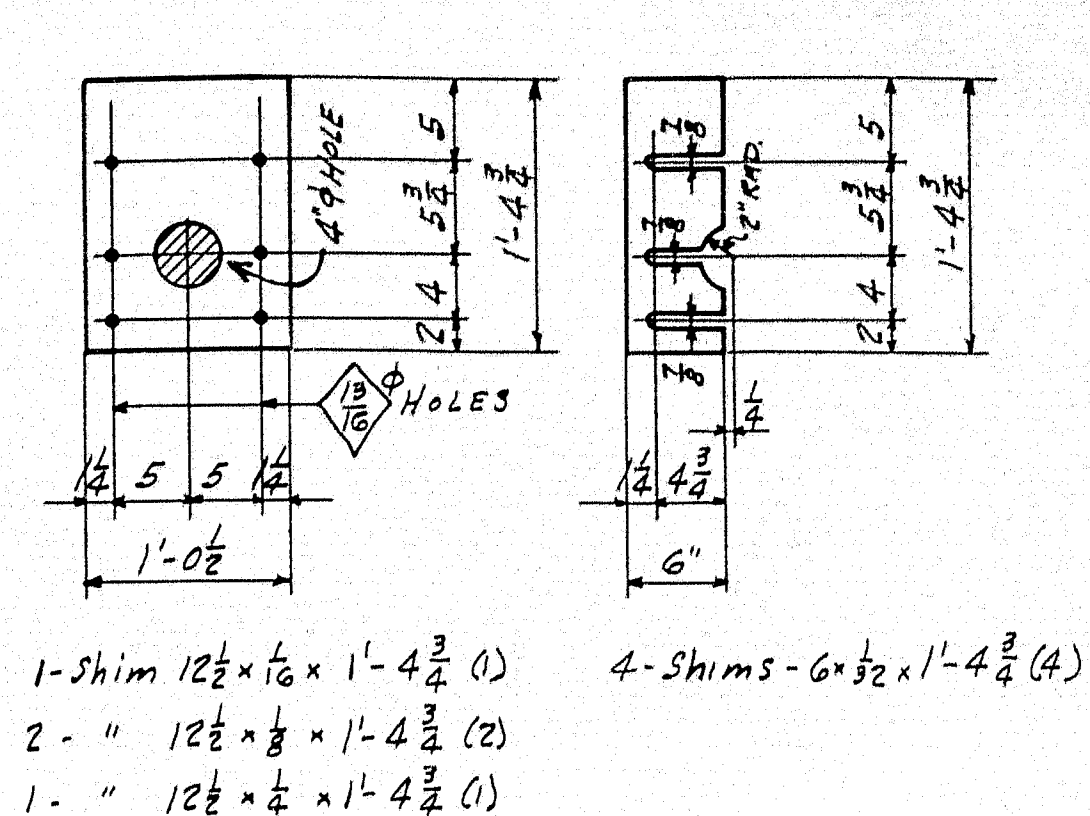 4"ϕ HOLE
5
5 3/4
4
2
1'-4 3/4
13/16 ϕ HOLES
1 1/4
5
5
1 1/4
1'-0 1/2
7/8
7/8
7/8
2" RAD.
5
5 3/4
4
2
1'-4 3/4
1/4
1 1/4
4 3/4
6"
1-Shim 12 1/2 x 1/16 x 1'-4 3/4 (1)
2 - " 12 1/2 x 1/8 x 1'-4 3/4 (2)
1 - " 12 1/2 x 1/4 x 1'-4 3/4 (1)
4-Shims-6 x 1/32 x 1'-4 3/4 (4)